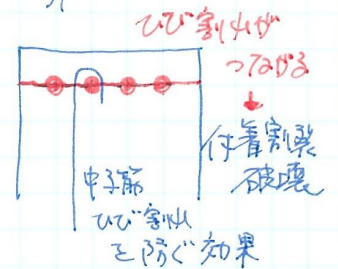 ひび割れが
つながる
↓
付着割裂
破壊
中子筋
ひび割れ
を防ぐ効果